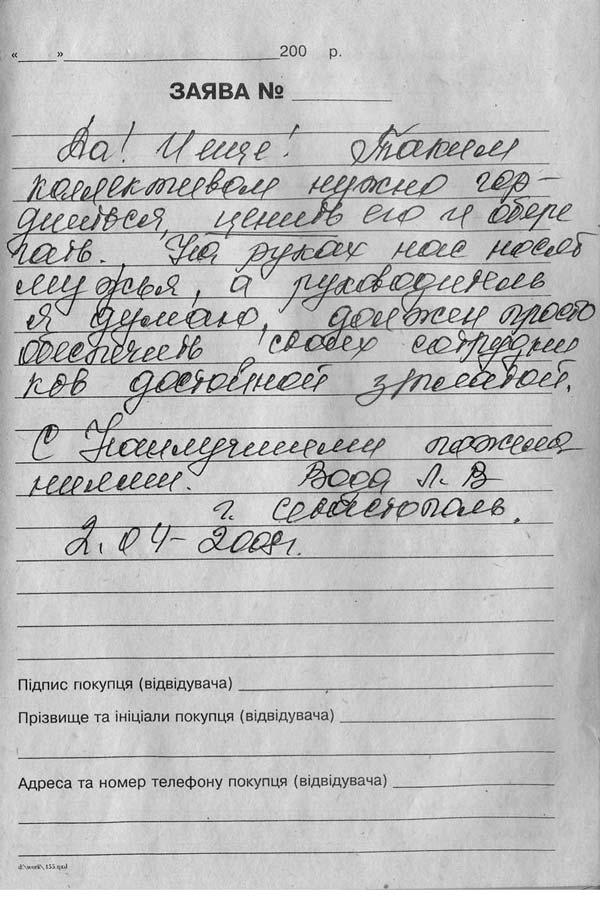 «____»____________________200 р.
ЗАЯВА № ________
Да! И еще! Таким
коллективом нужно гор-
диться, ценить его и обере
гать. На руках нас носят
мужья, а руководитель
я думаю, должен просто
обеспечить своих сотрудни
ков достойной зрплатой.
С Наилучшими пожела
ниями. Вода Л. В
г. Севастополь.
2. 04-2008г.
Підпис покупця (відвідувача)
Прізвище та ініціали покупця (відвідувача)
Адреса та номер телефону покупця (відвідувача)